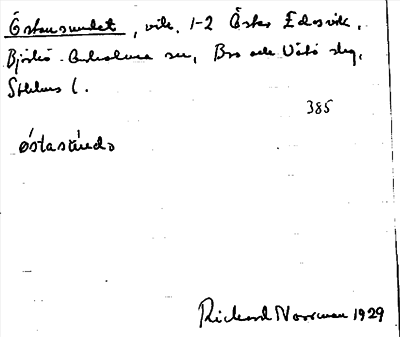 Östansundet, vik. 1-2 Östra Edsvik,
Björkö-Arholma sn, Bro och Vätö slg,
Sthlms l.
385
östasúndə
Rickard Norrman 1929